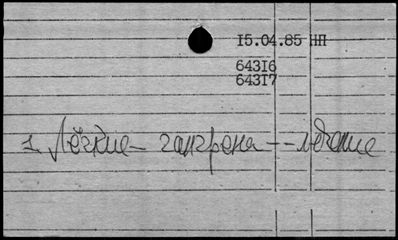 15.04.85 НП
64316
64317
1. Лёгкие – гангрена -- лечение